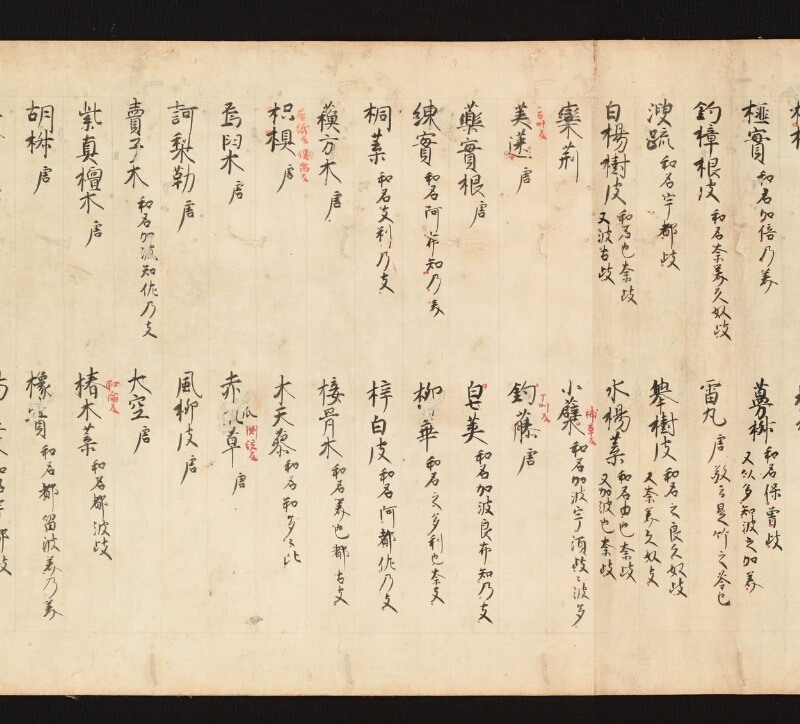 榧實 和名加倍乃美
蔓椒 和名保曽岐
又以多知波之加美
釣樟根皮 和名奈美久奴岐
雷丸 唐 敬云是竹之苓也
溲疏 和名宇都岐
擧樹皮 和名之良久奴岐
又奈美久奴支
白楊樹皮 和名也奈岐
又波古岐
水楊葉 和名由也奈岐
又加波也奈岐
欒荊
小蘗 和名加波宇須岐〻波多
莢蒾 唐
釣藤 唐
藥實根 唐
皂莢 和名加波良布知乃支
練實 和名阿布知乃美
柳華 和名之多利也奈支
桐葉 和名支利乃支
梓白皮 和名阿都佐乃支
蘓方木 唐
椄骨木 和名美也都古支
枳椇 唐
木天蓼 和名和多〻比
烏臼木 唐
赤爪草 唐
訶梨勒 唐
風柳皮 唐
賣子木 和名加波知佐乃支
大空 唐
紫真檀木 唐
椿木葉 和名都波岐
胡椒 唐
橡實 和名都留波美乃美